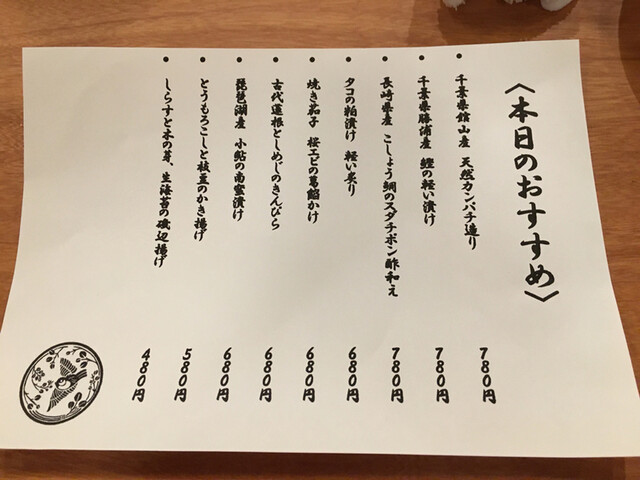 〈本日のおすすめ〉
・千葉県館山産 天然カンパチ造り 780円
・千葉県勝浦産 鰹の軽い漬け 780円
・長崎県産 こしょう鯛のスダチポン酢和え 780円
・タコの粕漬け 軽い炙り 680円
・焼き茄子 桜エビの葛餡かけ 680円
・古代蓮根としめじのきんぴら 680円
・琵琶湖産 小鮎の南蛮漬け 680円
・とうもろこしと枝豆のかき揚げ 580円
・しらすと木の芽、生海苔の磯辺揚げ 480円